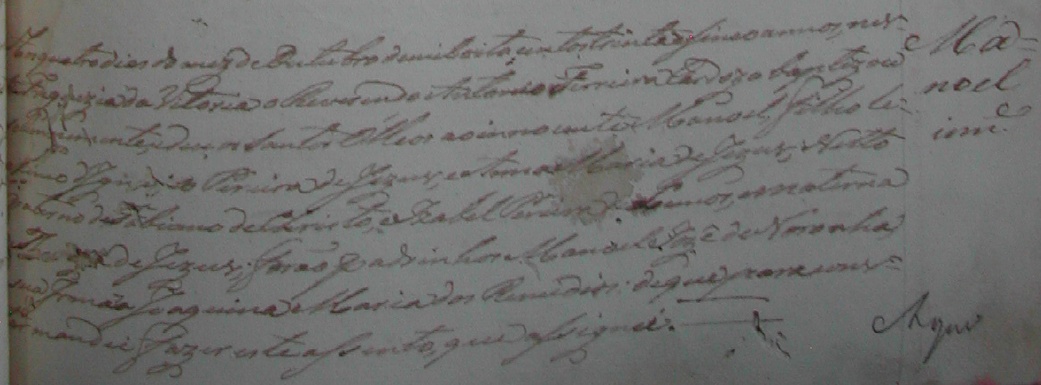 quatro dias do mez de Outubro de mil oito centos trinta e sinco annos, nes-
Freguezia da Vitoria o Reverendo Antonio Ferreira Cardozo baptizou
e dis os Santos Oleos ao innocente Manoel, Filho le-
Ignacio Pereira de Jezus, e Maria de Jezus, Netto
paterno de Fabiano de Christo, e Izabel e materna
de Jezus; forão Padrinhos Manoel Jozé de Noronha,
sua Irmãa Joaquina Maria dos Remedios: de que para cons-
mandei fazer este assento, que assignei.
Ma-
noel
inn.e